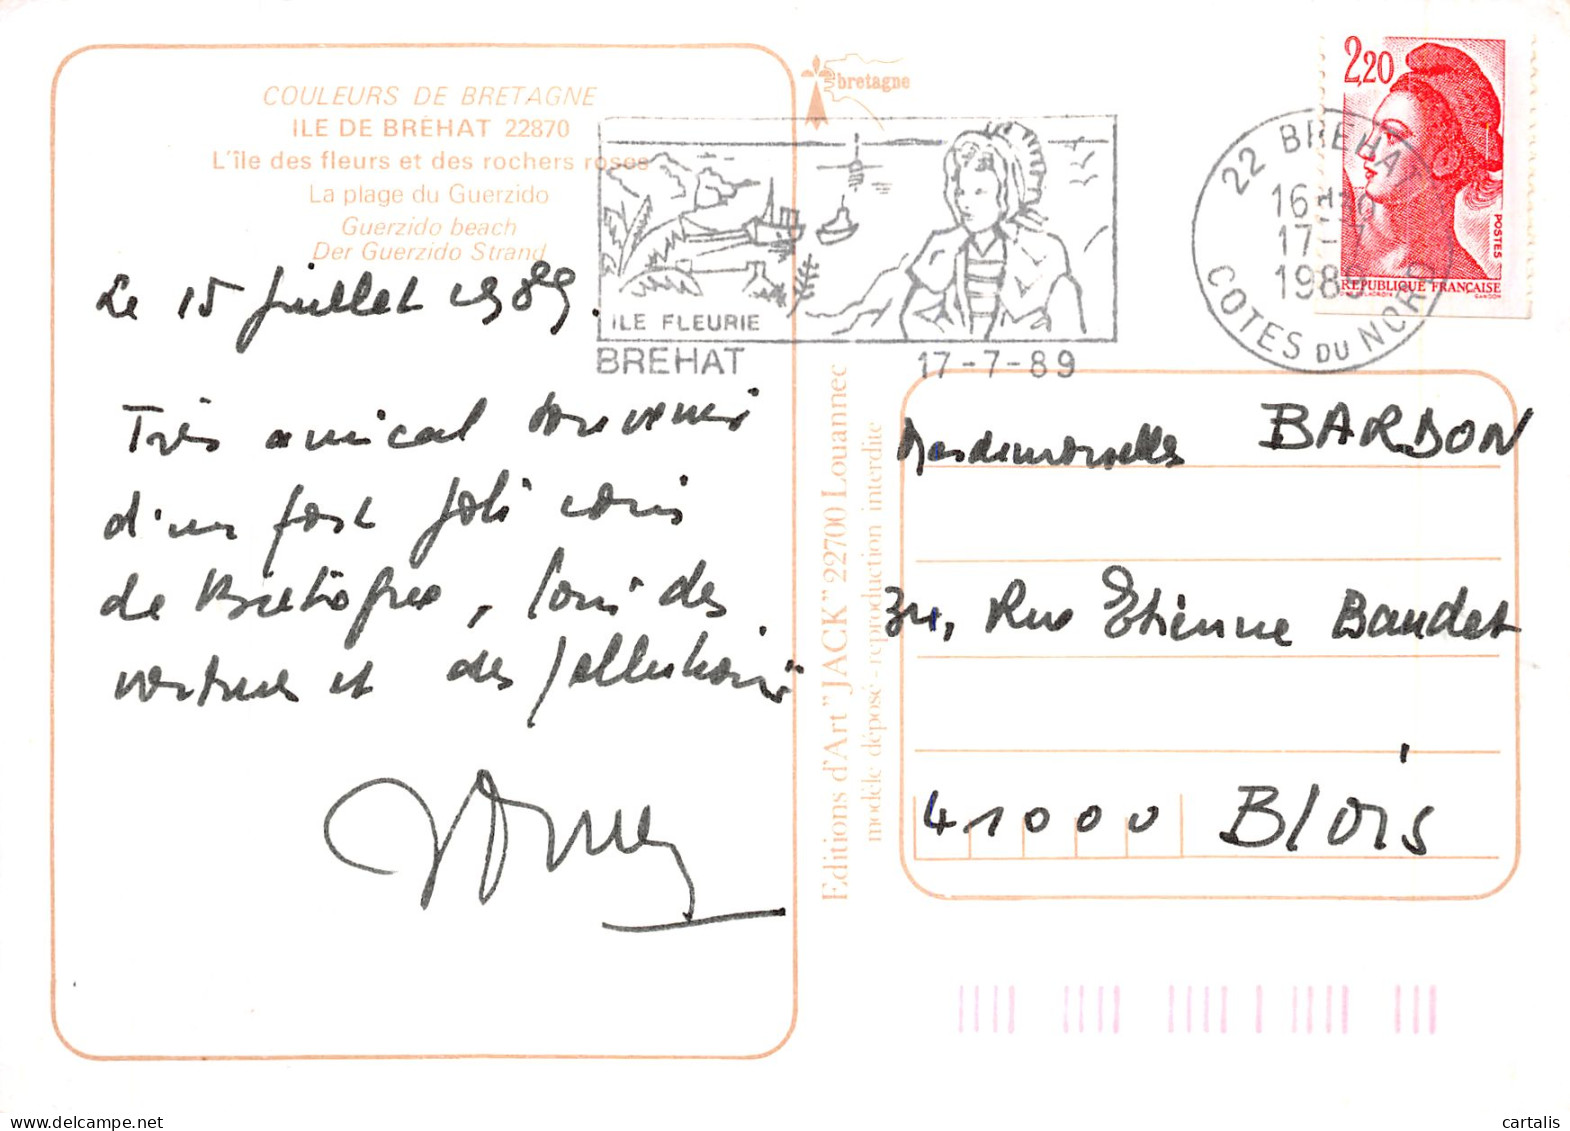 COULEURS DE BRETAGNE
ILE DE BRÉHAT 22870
L'île des fleurs et des rochers roses
La plage du Guerzido
Guerzido beach
Der Guerzido Strand
bretagne
ILE FLEURIE
BREHAT 17-7-89
22 BREHAT
16 H30
17-7
1989
COTES DU NORD
2,20
POSTES
REPUBLIQUE FRANÇAISE
Le 15 Juillet 1989.
Très amical souvenir
d'un fort joli coin
de Bretagne, loin des
et des
Editions d'Art "JACK" 22700 Louannec
modèle déposé - reproduction interdite
Mesdemoiselles BARDON
34, Rue Etienne Baudet
41000 Blois
cartalis